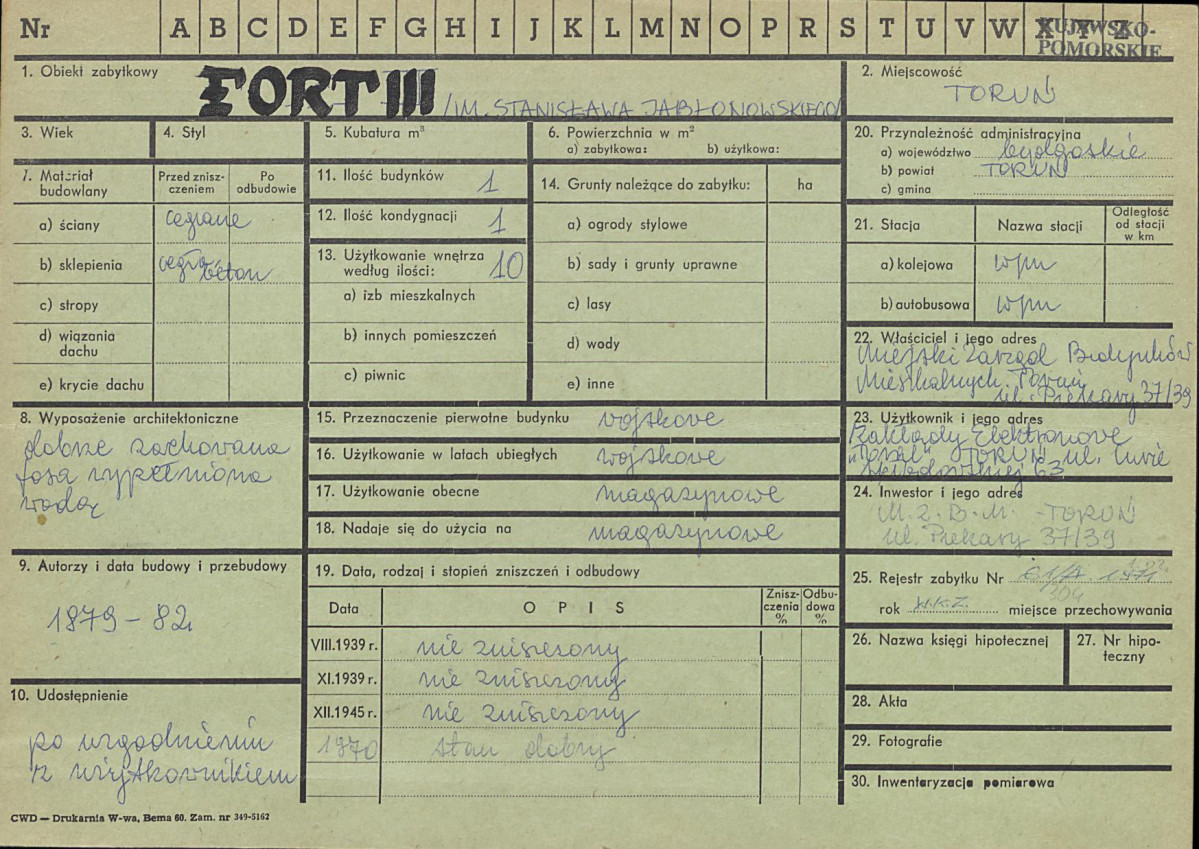 Nr A B C D E F G H I J K L M N O P R S T U V W X Y Z
KUJAWSKO-
POMORSKIE
1. Obiekt zabytkowy
FORT III /IM. STANISŁAWA JABŁONOWSKIEGO/
2. Miejscowość
TORUŃ
3. Wiek
4. Styl
5. Kubatura m³
6. Powierzchnia w m²
a) zabytkowa: b) użytkowa:
20. Przynależność administracyjna
a) województwo bydgoskie
b) powiat TORUŃ
c) gmina
7. Materiał
budowlany
Przed znisz-
czeniem
Po
odbudowie
a) ściany ceglane
b) sklepienia cegła beton
c) stropy
d) wiązania
dachu
e) krycie dachu
11. Ilość budynków 1
12. Ilość kondygnacji 1
13. Użytkowanie wnętrza
według ilości: 10
a) izb mieszkalnych
b) innych pomieszczeń
c) piwnic
14. Grunty należące do zabytku: ha
a) ogrody stylowe
b) sady i grunty uprawne
c) lasy
d) wody
e) inne
21. Stacja Nazwa stacji
Odległość
od stacji
w km
a) kolejowa wpm
b) autobusowa wpm
22. Właściciel i jego adres
Miejski Zarząd Budynków
Mieszkalnych Toruń
ul. Piekary 37/39
8. Wyposażenie architektoniczne
dobrze zachowana
fosa wypełniona
wodą
15. Przeznaczenie pierwotne budynku wojskowe
16. Użytkowanie w latach ubiegłych wojskowe
17. Użytkowanie obecne magazynowe
18. Nadaje się do użycia na magazynowe
23. Użytkownik i jego adres
Zakłady Elektronowe
TORUŃ ul. Curie
Skłodowskiej 63
24. Inwestor i jego adres
M.Z.B.M. - TORUŃ
ul. Piekary 37/39
9. Autorzy i data budowy i przebudowy
1879 - 82
19. Data, rodzaj i stopień zniszczeń i odbudowy
Data OPIS
Znisz-
czenia
%
Odbu-
dowa
%
VIII.1939 r. nie zniszczony
XI.1939 r. nie zniszczony
XII.1945 r. nie zniszczony
1970 stan dobry
25. Rejestr zabytku Nr 61/A 1971
304
rok W.K.Z. miejsce przechowywania
26. Nazwa księgi hipotecznej
27. Nr hipo-
teczny
10. Udostępnienie
po uzgodnieniu
z użytkownikiem
28. Akta
29. Fotografie
30. Inwentaryzacja pomiarowa
CWD — Drukarnia W-wa, Bema 60. Zam. nr 349-5162